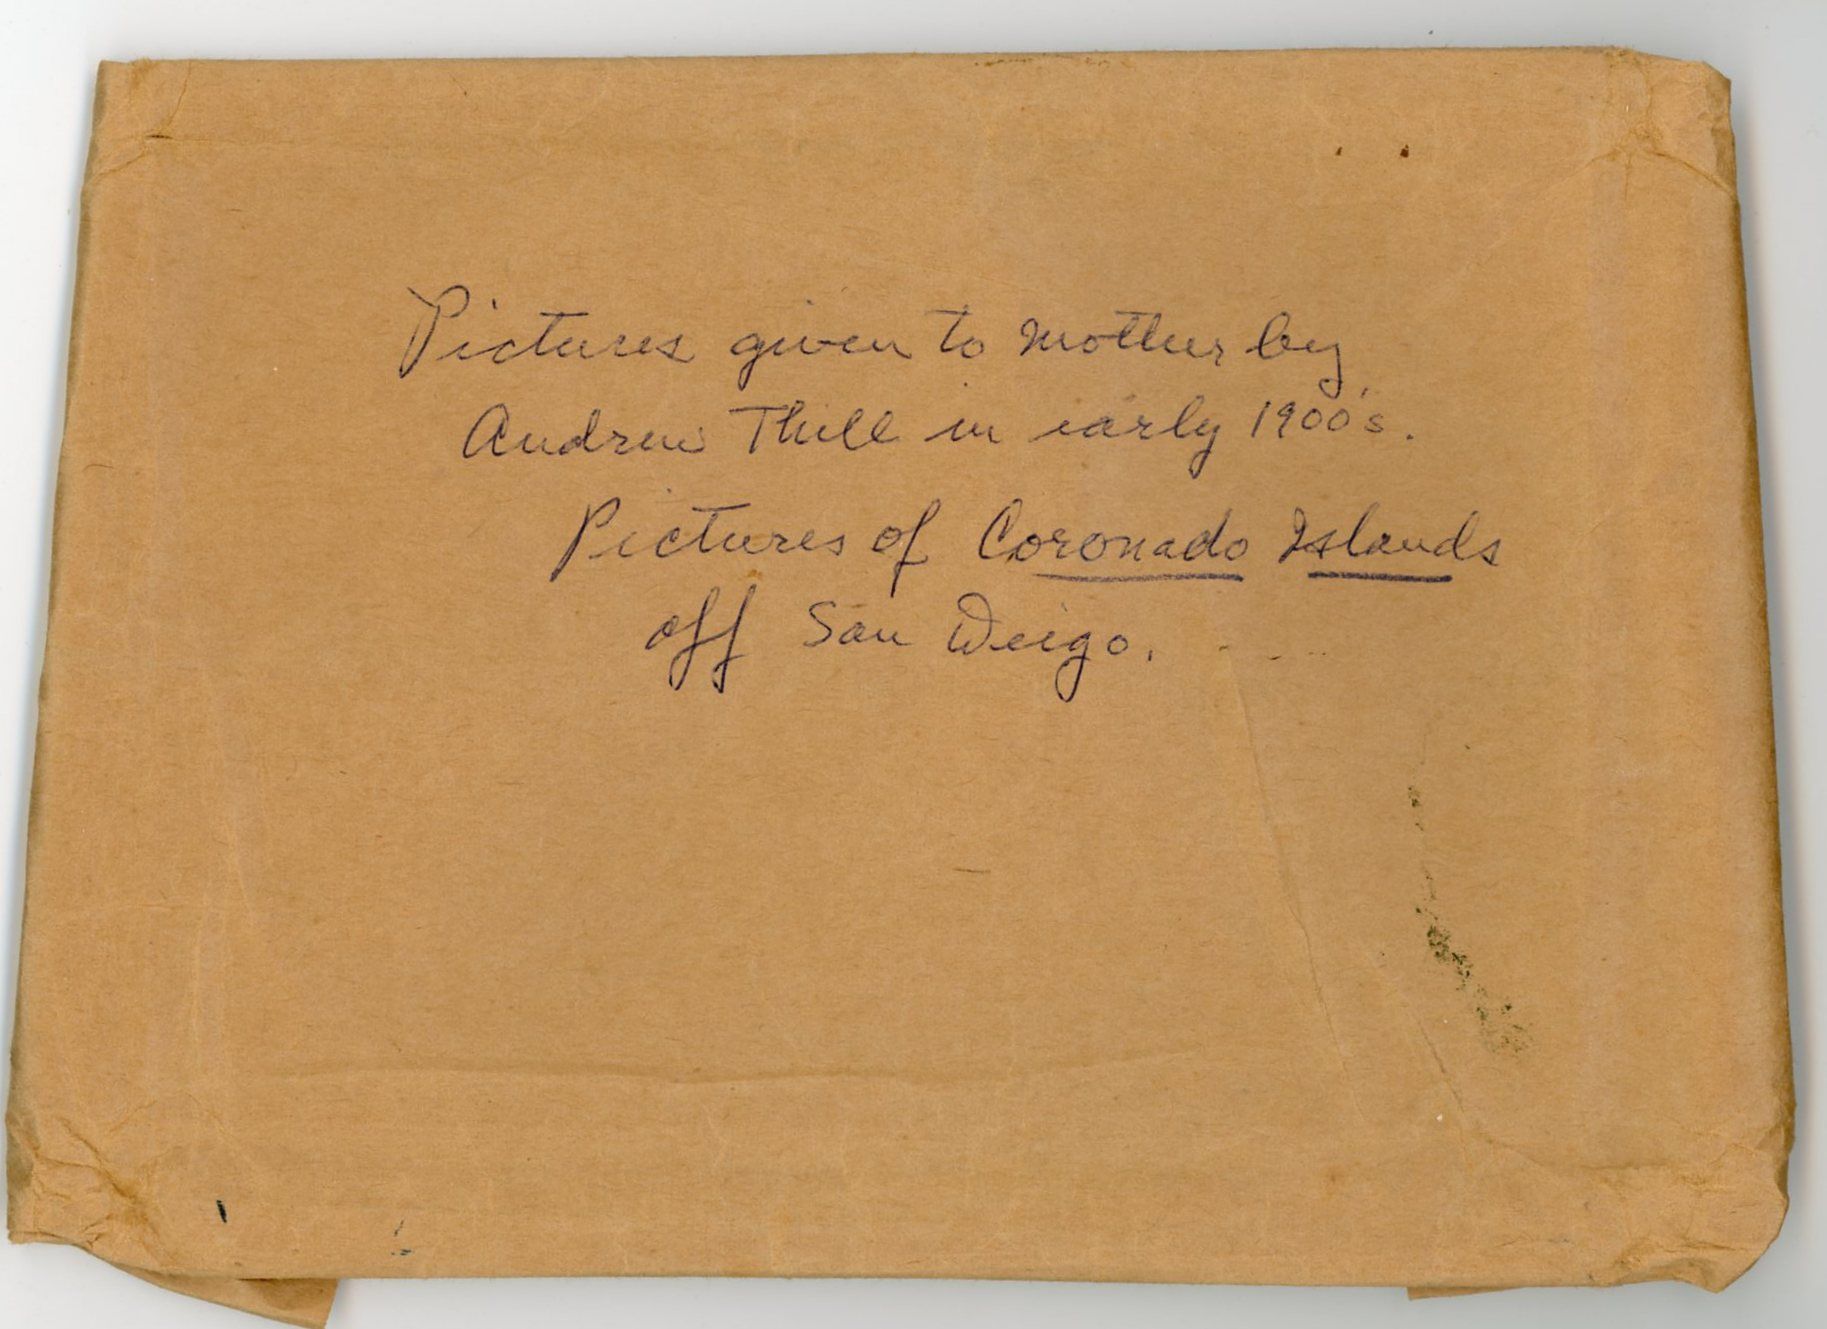 Pictures given to mother by
Andrew Thill in early 1900's.
Pictures of Coronado Islands
off San Deigo.